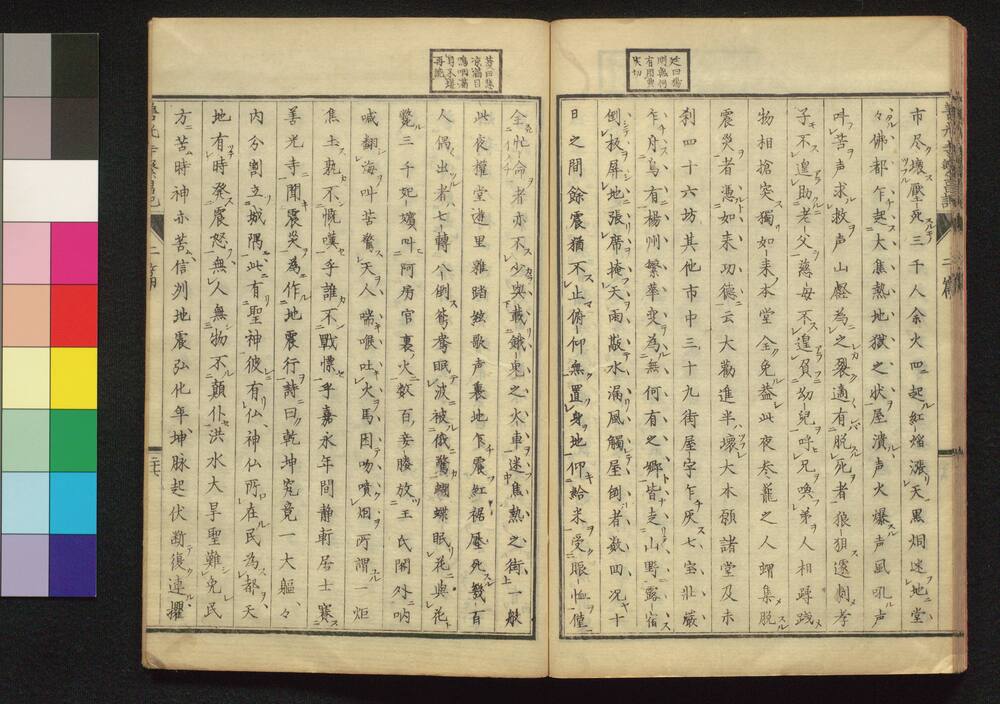 市尽壊壓死三千人余火四起紅焔漲天黒烟迷地堂
々佛都乍起大焦熱地獄之状屋潰声火爆声風吼声
叫苦声求救声山壑為之裂適有脱死者狼狽還刻孝
子不遑助老父慈母不遑負幼児呼兄喚弟人相蹲践
物相搶突独如来本堂全免益此夜参籠之人蝟集脱
震災者憑如来功徳云大勧進半壊大本願諸堂及末
刹四十六坊其他市中三十九街屋宇乍灰七宝荘厳
乍舟烏有楊州繁華変為無何有之郷皆走山野露宿
倒板屏地張席掩天雨敲水漏風触屋倒者数四况十
日之間餘震猶不止俯仰無置身地仰給米受賑恤僅
全忙命者亦不少與載餓鬼之火車迷焦熱之街一般
此夜権堂遊里雜踏絃歌声裏地乍震紅裙壓死幾百
人偶出者七轉八倒鴛鴦眠波被俄驚蝴蝶眠花與花
斃三千妃嬪叫阿房宮裏火数百妾媵放王氏閣外吶
喊翻海叫苦驚天人喘喉吐火馬困吻噴烟所謂一炬
焦土孰不慨嘆乎誰不戦慄乎嘉永年間静斬居士赛
善光寺聞震災為作地震行詩曰乾坤究竟一大軀々
内分割立城隅此有聖神彼有仏神仏所在民為都天
地有時発震怒無人無物不顛仆洪水大旱聖難免民
方苦時神亦苦信列地震弘化年坤脉起伏断復連攫